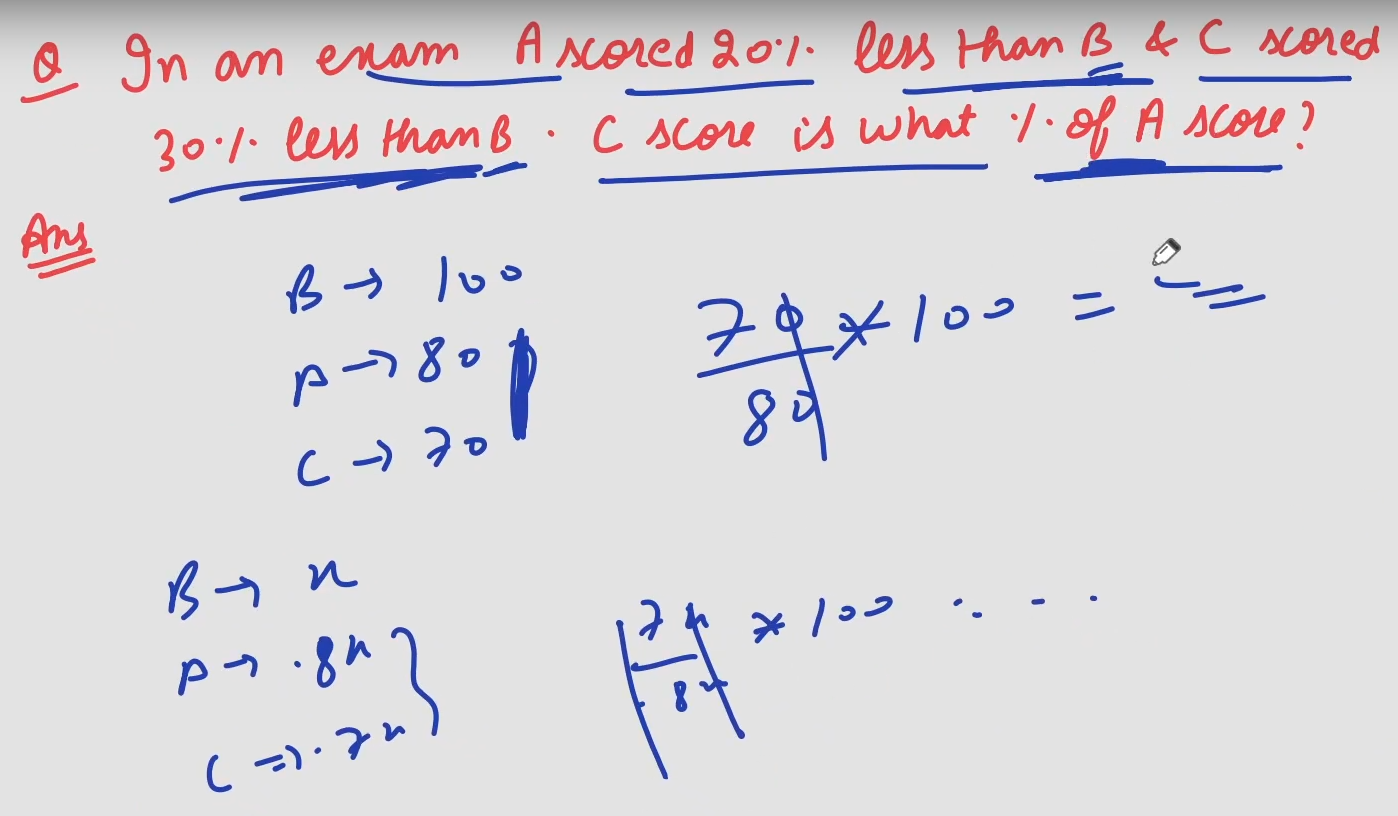 Q In an exam A scored 20% less than B & C scored
30% less than B. C score is what % of A score?
Ans
B → 100
A → 80
C → 70
70/80 * 100 =
B → x
A → .8x
C => .7x
.7x/.8x * 100 : - -